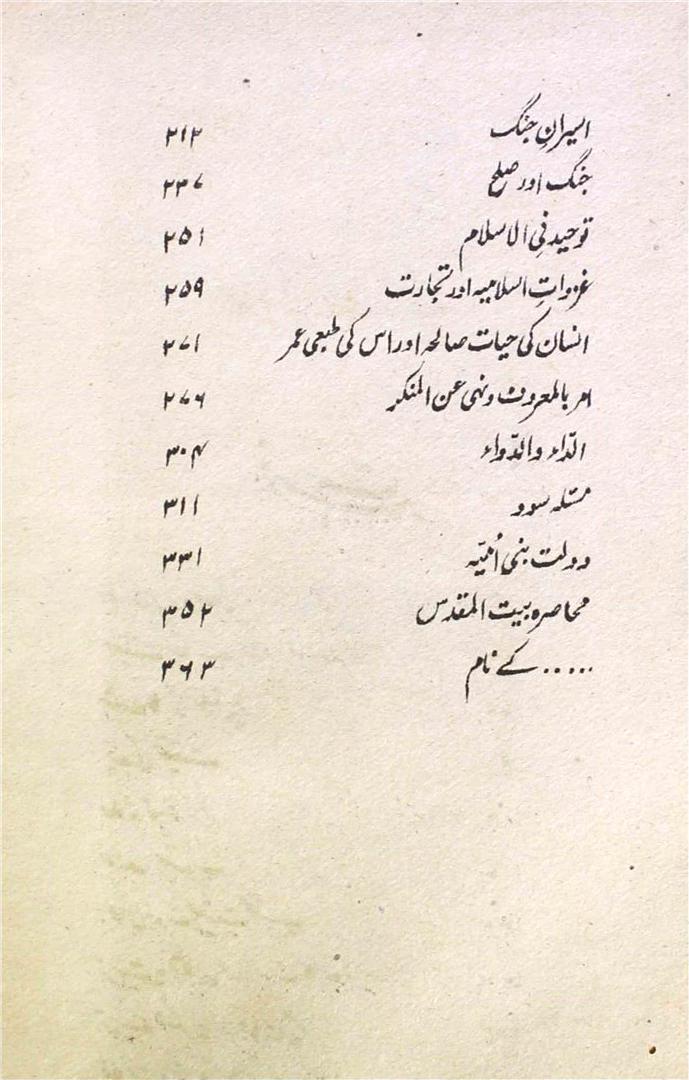 اسیرانِ جنگ ۲۱۲
جنگ اور صلح ۲۳۷
توحید فی الاسلام ۲۵۱
غزواتِ اسلامیہ اور تجارت ۲۵۹
انسان کی حیات صالحہ اور اس کی طبعی عمر ۲۷۱
امر بالمعروف ونہی عن المنکر ۲۷۶
الدّاء والدّواء ۳۰۴
مسئلہ سود ۳۱۱
دولت بنی اُمیّہ ۳۳۱
محاصرہ بیت المقدس ۳۵۲
..... کے نام ۳۶۳